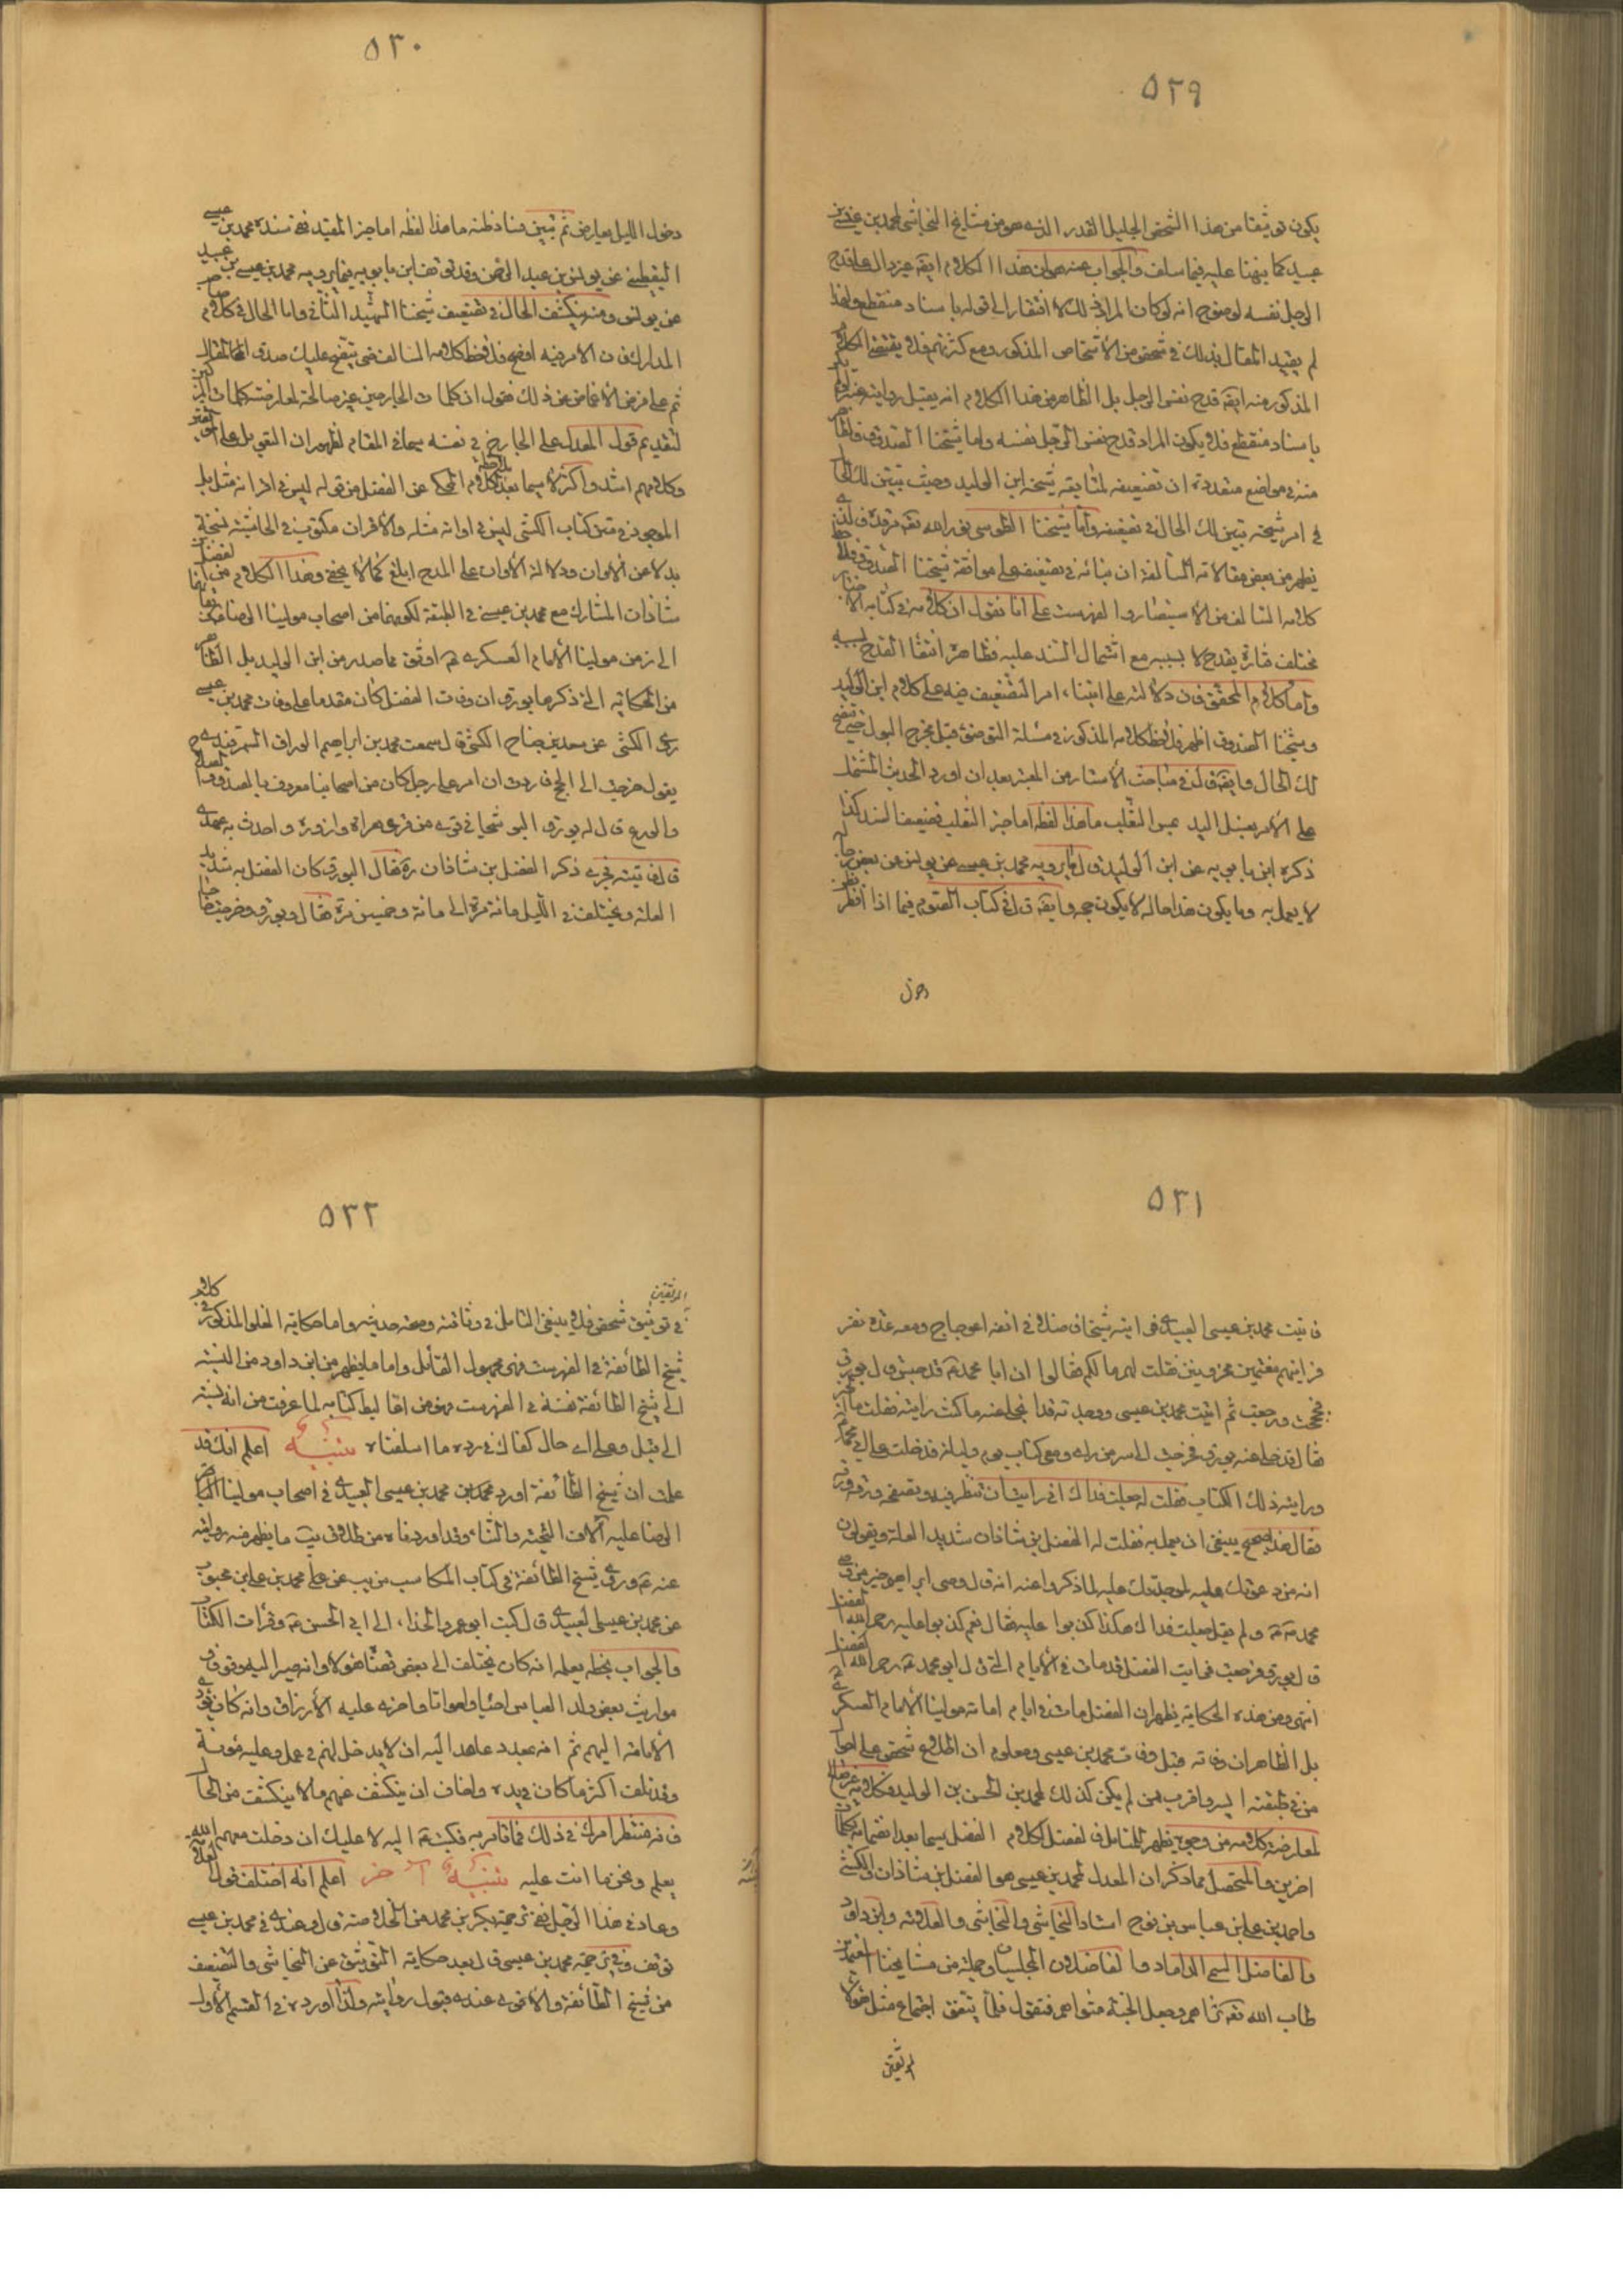 ٥٢٩
يكون توثيقا من هذا الشخص الجليل القدر الذي هو من مشايخ النجاشي لمحمد بن عيسى بن
عبيد كما نبهنا عليه فيما سلف والجواب عنه هو ان هذا الكلام ايضه غير دال على قدح
الرجل نفسه لوضوح انه لو كان المراد ذلك لا افتقار الى قوله باسناد منقطع ولهذا
لم يقيد المقال بذلك في شخص من الاشخاص المذكور ومع كثرتهم فلا يقتضي الكلام
المذكور منه ايضه قدح نفس الرجل بل الظاهر من هذا الكلام انه يقبل روايته
باسناد منقطع فلا يكون المراد قدح نفس الرجل نفسه واما شيخنا الصدوق
منه في مواضع متعددة ان تضعيفه لمتابعة شيخه ابن الوليد وحيث تبين لك الحال
في امر شيخه تبين لك الحال في تضعيفه واما شيخنا الطوسي نور الله تعه مرقده
يظهر من بعض مقالاته السالفة ان بنائه في تضعيفه على موافقة شيخنا الصدوق
كلامه السالف من الاستبصار والفهرست على انا نقول ان كلامه في كتابه الاخبار
مختلف فتارة يقدح لا بسببه مع اشتمال السند عليه فظاهره انتفاء القدح بسببه
واما كلام المحقق فان دلالته على ابتناء امر التضعيف فيه على كلام ابن الوليد
وشيخنا الصدوق اظهر فلاحظ كلامه المذكور في مسئلة التوضئ قبل مخرج البول حتى يتضح
لك الحال وايضه قال في مباحث الاسئار من المعتبر بعد ان اورد الحديث المشتمل
على الامر بغسل اليد عن الثعلب ما هذا لفظه اما خبر الثعلب فضعيف السند كذا
ذكره ابن بابويه عن ابن الوليد قال ما يرويه محمد بن عيسى عن يونس عن بعض رجاله
لا يعمل به وما يكون هذا حاله لا يكون حجة وايضه قال في كتاب الصوم فيما اذا افطر
دخول
٥٣٠
دخول الليل يعارض ثم تبين فساد ظنه ما هذا لفظه اما خبر المقيد ففي سنده محمد بن عيسى
اليقطيني عن يونس بن عبد الرحمن وقد توقف ابن بابويه فيما يرويه محمد بن عيسى بن عبيد
عن يونس ومنه ينكشف الحال في تضعيف شيخنا الشهيد الثاني واما الحال في كلام صاحب
المدارك فان الامر فيه اوضح فلاحظ كلامه السالف حتى يتضح عليك صدق المقال
ثم على فرض الاغماض عن ذلك نقول ان كلمات الجارحين غير صالحة لمعارضته كلمات
لتقديم قول المعدل على الجارح في نفسه سيما في المقام لظهور ان التعويل على
وكلامهم اشد واكثر لا سيما بعد ملاحظة كلام المحكي عن الفضل من قوله ليس في اقرانه مثله بل
الموجود في متن كتاب الكشي ليس في اوانه مثله والاقران مكتوب في الحاشية نسخة
بدلا عن الاوان ودلالة الاوان على المدح ابلغ كما لا يخفى وهذا الكلام من الفضل بن
شاذان المشارك مع محمد بن عيسى في الطبقة لكونهما من اصحاب مولينا الرضا
الى زمن مولينا الامام العسكري ع اوثق مما صدر من ابن الوليد بل الظاهر
من الحكاية التي ذكرها بورق ان وفات الفضل كان مقدما على وفات محمد بن عيسى
روى الكشي عن سعد بن جناح الكشي قال سمعت محمد بن ابراهيم الوراق السمرقندي
يقول خرجت الى الحج فاردت ان امر على رجل كان من اصحابنا معروف بالصدق والصلاح
والورع قال له بورق البوشنجاني قرية من قرى هراة وازوره واحدث به عهدي
قال فاتيته فجرى ذكر الفضل بن شاذان ره فقال البورق كان الفضل به شديد
العلة ويختلف في الليل مائة مرة الى مائة وخمسين مرة فقال بورق خرجت حاجا
٥٣١
فاتيت محمد بن عيسى العبيدي فرايته شيخا فاضلا في انفه اعوجاج ومعه عدة نفر
فرايتهم مغتمين محزونين فقلت لهم ما لكم فقالوا ان ابا محمد ع قد حبس قال بورق
فحججت ورجعت ثم اتيت محمد بن عيسى ووجدته قد انجلى عنه ما كنت رايته فقلت ما الخبر
فقال قد خلى عنه بورق فخرجت الى سر من راى ومعي كتاب يوم وليلة فدخلت على ابي محمد
ورايته ذلك الكتاب فقلت له جعلت فداك اني رايت ان تنظر فيه وتصفحه ورقة ورقة
فقال هذا صحيح ينبغي ان يعمل به فقلت له الفضل بن شاذان شديد العلة ويقولون
انه من دعوتك عليه لموجدتك عليه لما ذكروا عنه انه قال وصي ابراهيم خير من وصي
محمد ص ولم يقل جعلت فداك هكذا كذبوا عليه فقال نعم كذبوا عليه رحم الله الفضل
قال بورق فرجعت فرايت الفضل قد مات في الايام التي قال ابو محمد ع رحم الله الفضل
انتهى ومن هذه الحكاية يظهر ان الفضل مات في ايام امامة مولينا الامام العسكري
بل الظاهر ان وفاته قبل وفات محمد بن عيسى ومعلوم ان اطلاع شخص على احوال
من في طبقته ايسر واقرب ممن لم يكن كذلك لمحمد بن الحسن بن الوليد فكلامه غير صالح
لمعارضة كلامه من وجوه يظهر للمتامل في لفضل كلام الفضل سيما بعد انضمام كلمات
اخرين والمتحصل مما ذكر ان المعدل لمحمد بن عيسى هو الفضل بن شاذان والكشي
واحمد بن علي بن عباس بن نوح استاد النجاشي والنجاشي والعلامة وابن داود
والفاضل السمي الداماد والفاضلان المجلسيان وجملة من مشايخنا المعتمدين
طاب الله تعه ثراهم وجعل الجنة مثواهم فنقول قلما يتفق اجتماع مثل هؤلاء
المرتقين
٥٣٢
المرتقين
في توثيق شخص فلا ينبغي التامل في وثاقته وصحة حديثه واما حكاية الغلو المذكور في كلام
شيخ الطائفة في الفهرست فهي مجهول القائل واما ما يظهر من ابن داود من النسبة
الى شيخ الطائفة نفسه في الفهرست فهو من اغاليط كتابه لما عرفت من انه نسبه
الى قيل وعلى اي حال كفاك في رده ما اسلفناه تنبيه اعلم انك قد
علمت ان شيخ الطائفة اورد محمد بن محمد بن عيسى العبيدي في اصحاب مولينا
الرضا عليه آلاف التحية والثناء وقد اوردناه من طلاق يب ما يظهر منه روايته
عنه ع وروى شيخ الطائفة في كتاب المكاسب من يب عن علي محمد بن علي بن محبوب
عن محمد بن عيسى العبيدي قال كتب ابو عمر والحذاء الى ابي الحسن ع وقرات الكتاب
والجواب بخطه يعلمه انه كان يختلف الى بعض قضاة هؤلاء وانه صير اليه وقوفا و
مواريث بعض ولد العباس احياء وامواتا واجرى عليه الارزاق وانه كان يؤدي
الامانة اليهم ثم انه بعد عاهد الله ان لا يدخل لهم في عمل وعليه مؤنة
وقد تلف اكثر ما كان في يده واخاف ان ينكشف عنهم ما لا ينكشف من الحال
فانه منتظر امرك في ذلك فما تامر به فكتب ع اليه لا عليك ان دخلت معهم الله
يعلم ونحن ما انت عليه تنبيه آخر اعلم انه اختلف قول العلامة
وعاد في هذا الرجل ففي ترجمة بكر بن محمد من الخلاصة قال وعندي في محمد بن عيسى
توقف وفي ترجمة محمد بن عيسى قال بعد حكاية التوثيق عن النجاشي والتضعيف
من شيخ الطائفة والاقوى عندي قبول روايته ولذا اورده في القسم الاول